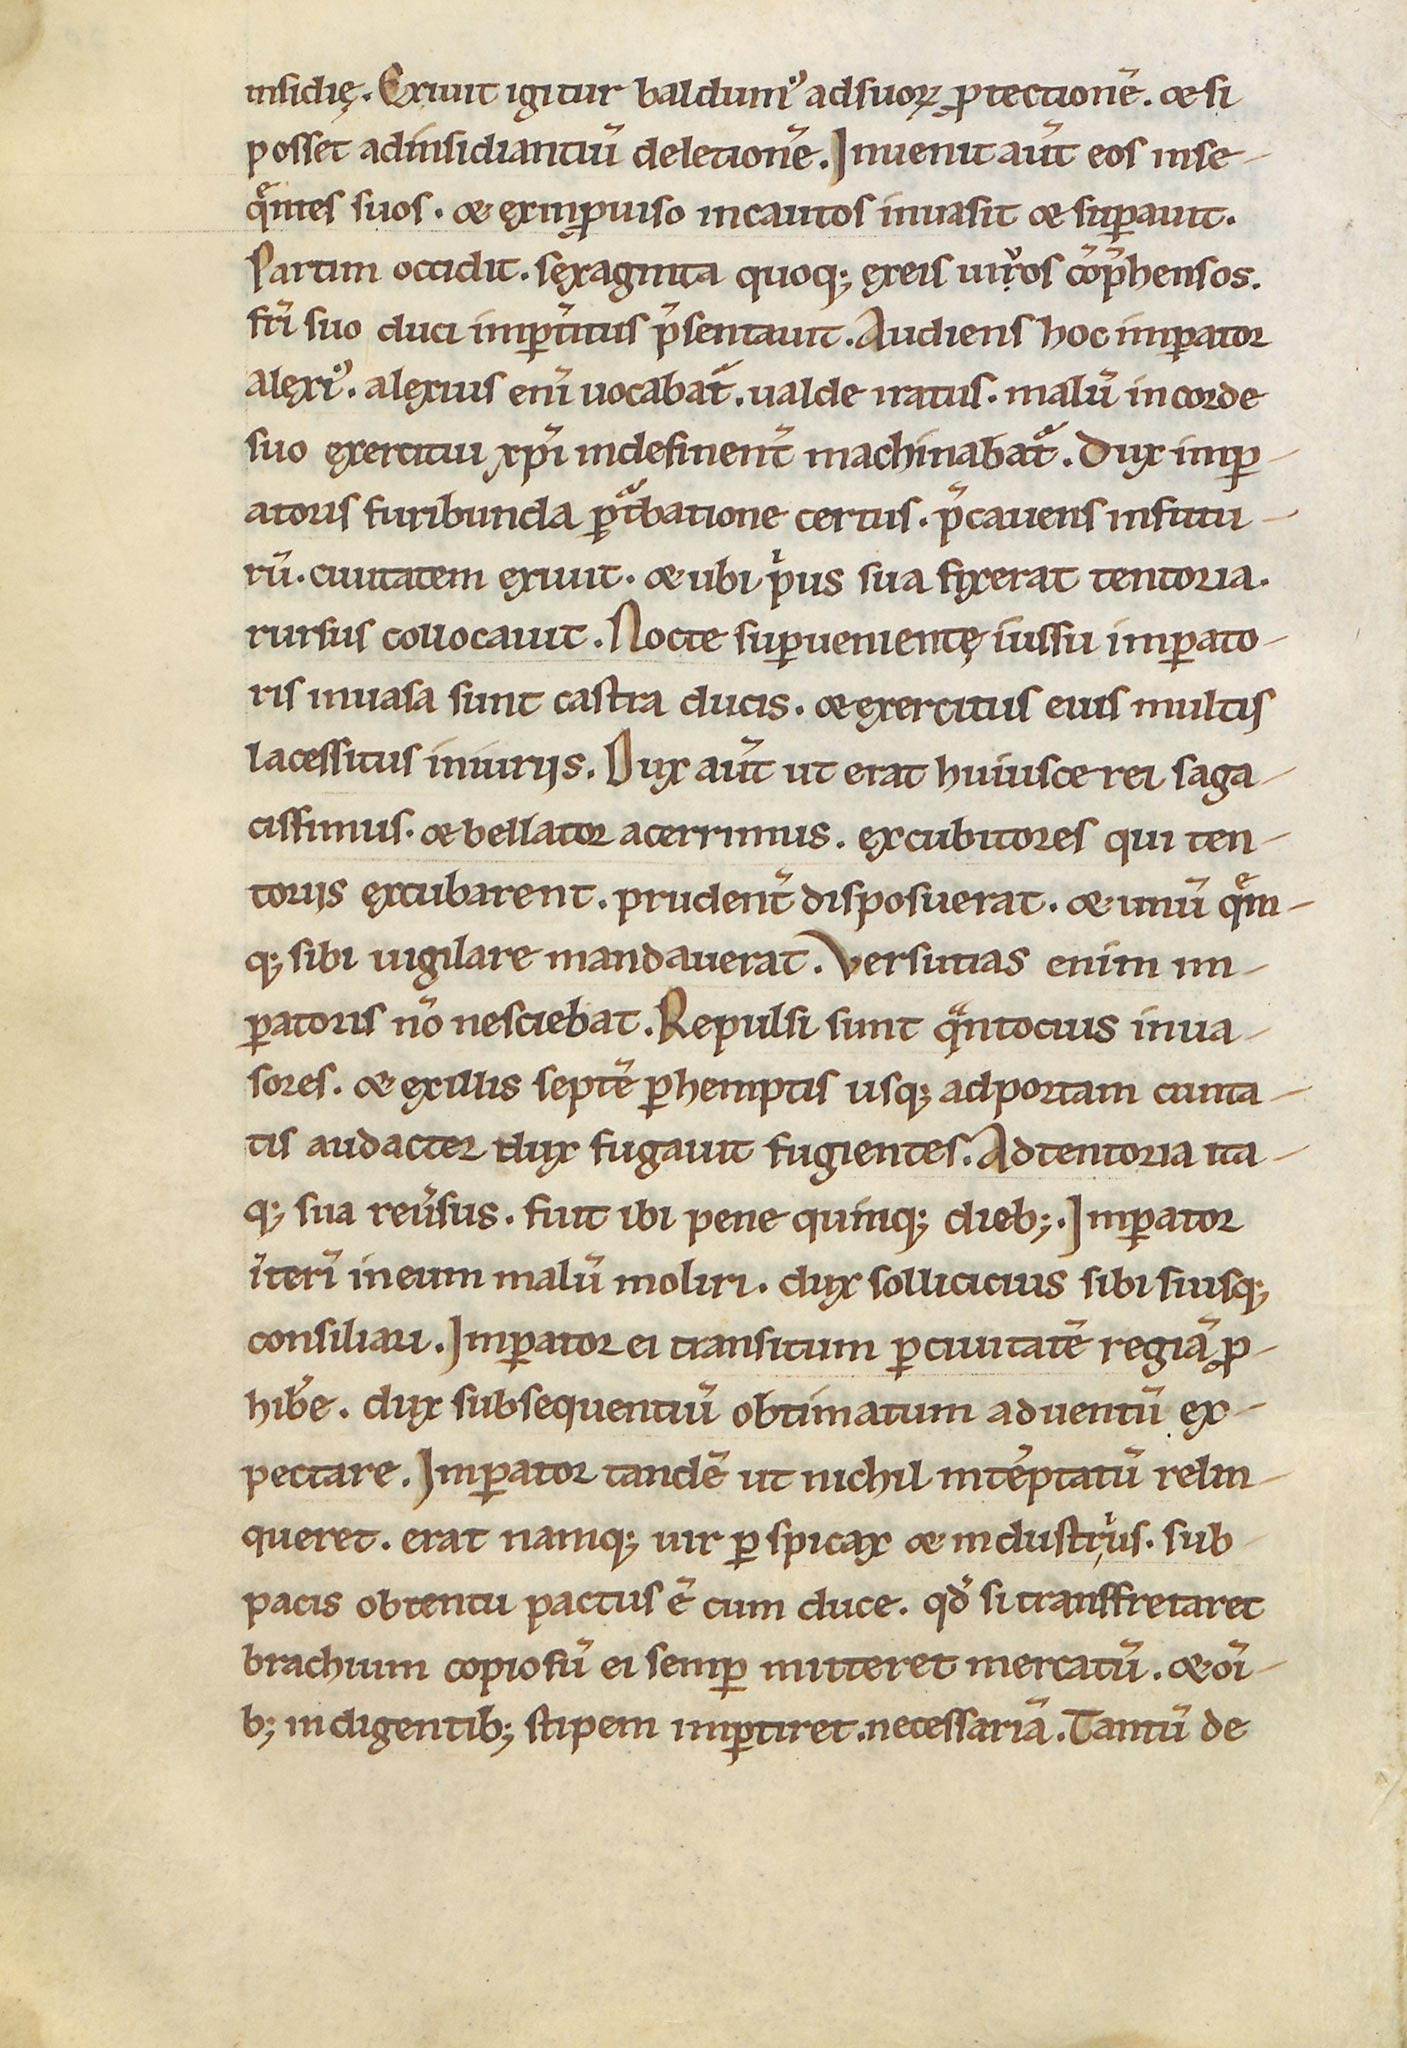 insidię. Exiuit igitur balduinꝰ ad suoꝝ ꝓtectionē. & si
posset ad insidiantiū deletionē. Inuenit aūt eos inse-
qͣntes suos. & ex inꝓuiso incautos inuasit & suꝑauit.
Partim occidit. sexaginta quoq; ex eis uiuos cōp̄hensos.
fr̄i suo duci imꝑt̄itus p̄sentauit. Audiens hoc imꝑator
alexiꝰ. alexius eni̅ uocabat᷑. ualde iratus. malū in corde
suo exercitui xp̄i indesinent̄ machinabat᷑. Dux imꝑ-
atoris furibunda ꝑt᷑batione certus. p̄cauens in futu-
rū. ciuitatem exiuit. & ubi pͥus sua fixerat tentoria.
rursus collocauit. Nocte suꝑuenientę iussu imꝑato-
ris inuasa sunt castra ducis. & exercitus eius multis
lacessitus iniuriis. Dux aūt ut erat huiusce rei saga-
cissimus. & bellator acerrimus. excubitores qui ten-
toriis excubarent. prudent̄ disposuerat. & unū qͤm-
q; sibi uigilare mandauerat. Versutias enim im-
ꝑatoris nō nesciebat. Repulsi sunt qͣntocius inua-
sores. & ex illis septē ꝑhemptis usq; ad portam ciuita-
tis audacter dux fugauit fugientes. Ad tentoria ita-
q; sua reūsus. fuit ibi pene quinq; dieb;. Imꝑator
iteri̅ in eum malū moliri. dux sollicicius sibi suisq;
consiliari. Imꝑator ei transitum ꝑ ciuitatē regiā ꝓ-
hib̄e. dux subsequentiū obtimatum aduentū ex-
pectare. Imꝑator tandē ut nichil int̄eptatū relin-
queret. erat namq; uir ꝑspicax & industrius. sub
pacis obtentu pactus ē cum duce. qd̄ si transfretaret
brachium copiosū ei semꝑ mitteret mercatū. & oi̅-
b; indigentib; stipem imꝑtiret necessariā. Tantū de